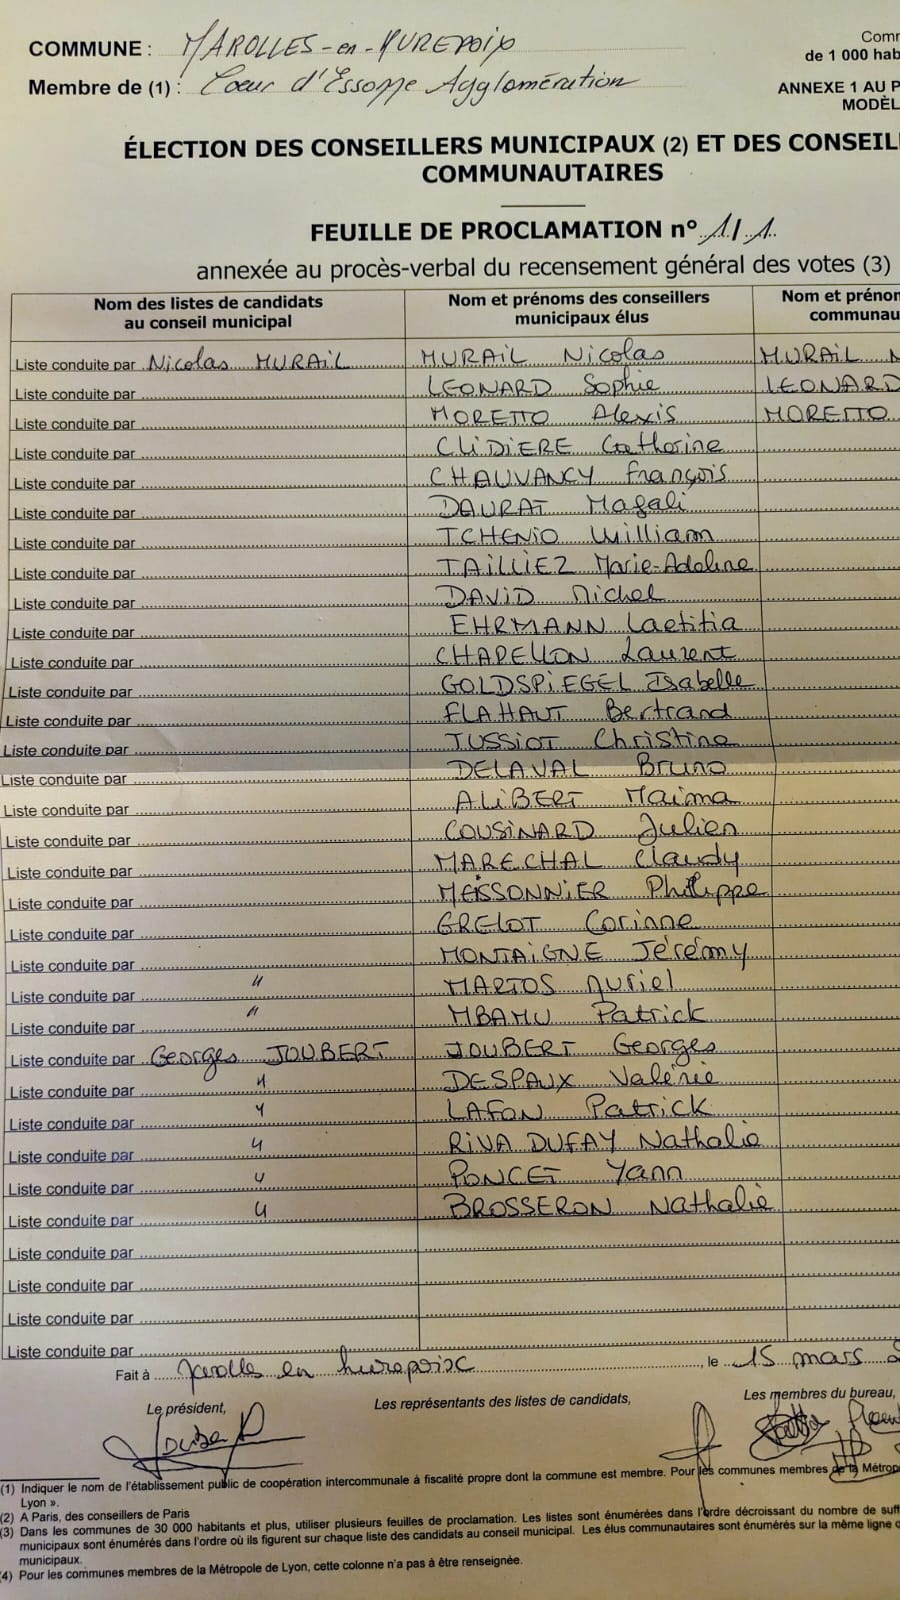 COMMUNE : MAROLLES-en-HUREPOIX
Comm
de 1 000 hab
Membre de (1) : Cœur d'Essonne Agglomération
ANNEXE 1 AU P
MODÈL
ÉLECTION DES CONSEILLERS MUNICIPAUX (2) ET DES CONSEIL
COMMUNAUTAIRES
FEUILLE DE PROCLAMATION n° 1/1
annexée au procès-verbal du recensement général des votes (3)
Nom des listes de candidats au conseil municipal Nom et prénoms des conseillers municipaux élus Nom et prénor communau
Liste conduite par Nicolas MURAIL MURAIL Nicolas MURAIL N
Liste conduite par LEONARD Sophie LEONARD
Liste conduite par MORETTO Alexis MORETTO
Liste conduite par CLIDIERE Catherine
Liste conduite par CHAUVANCY François
Liste conduite par DAURAT Magali
Liste conduite par TCHENIO William
Liste conduite par TAILLIEZ Marie-Adeline
Liste conduite par DAVID Michel
Liste conduite par EHRMANN Laetitia
Liste conduite par CHAPELLON Laurent
Liste conduite par GOLDSPIEGEL Isabelle
Liste conduite par FLAHAUT Bertrand
Liste conduite par TUSSIOT Christine
Liste conduite par DELAVAL Bruno
Liste conduite par ALIBERT Maima
Liste conduite par COUSINARD Julien
Liste conduite par MARECHAL Claudy
Liste conduite par MEISSONNIER Philippe
Liste conduite par GRELOT Corinne
Liste conduite par MONTAIGNE Jérémy
Liste conduite par " MARTOS Muriel
Liste conduite par " MBAMU Patrick
Liste conduite par Georges JOUBERT JOUBERT Georges
Liste conduite par " DESPAUX Valérie
Liste conduite par " LAFON Patrick
Liste conduite par " RIVA DUFAY Nathalie
Liste conduite par " PONCET Yann
Liste conduite par " BROSSERON Nathalie
Liste conduite par
Liste conduite par
Liste conduite par
Liste conduite par
Fait à Marolle en hurepoix, le 15 mars
Le président, Les représentants des listes de candidats, Les membres du bureau,
(1) Indiquer le nom de l'établissement public de coopération intercommunale à fiscalité propre dont la commune est membre. Pour les communes membres de la Métropo
Lyon ».
(2) A Paris, des conseillers de Paris
(3) Dans les communes de 30 000 habitants et plus, utiliser plusieurs feuilles de proclamation. Les listes sont énumérées dans l'ordre décroissant du nombre de suff
municipaux sont énumérés dans l'ordre où ils figurent sur chaque liste des candidats au conseil municipal. Les élus communautaires sont énumérés sur la même ligne
municipaux.
(4) Pour les communes membres de la Métropole de Lyon, cette colonne n'a pas à être renseignée.